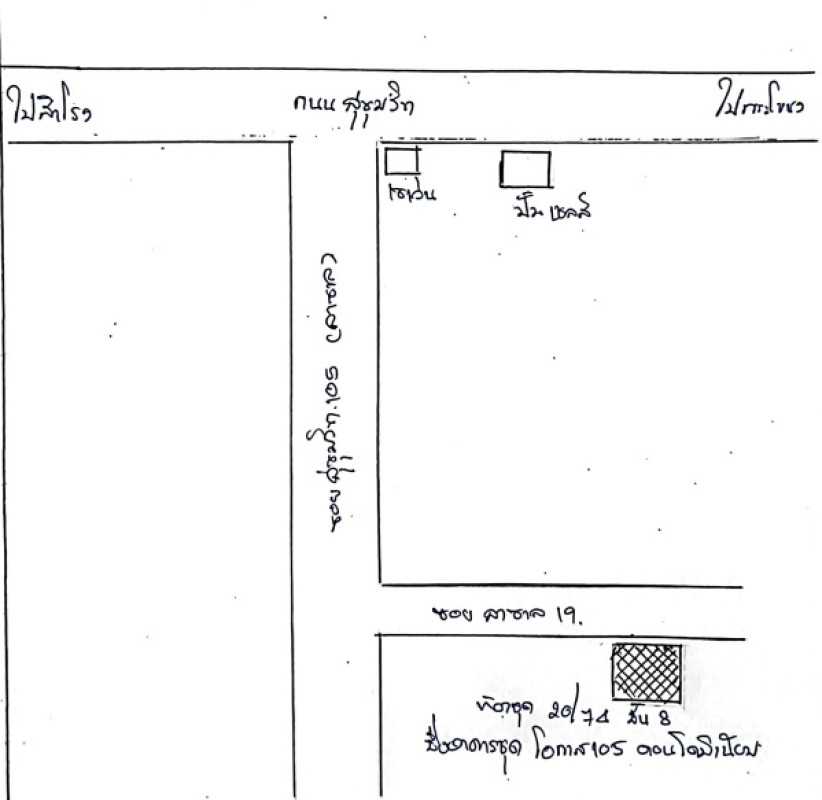 ไปสำโรง
ถนน สุขุมวิท
ไปพระโขนง
เซเว่น
ปั๊ม เชลล์
ซอยสุขุมวิท.105 (ลาซาล)
ซอย ลาซาล 19.
ห้องชุด 20/74 ชั้น 8
ชื่ออาคารชุด โอกาส105 คอนโดมิเนียม